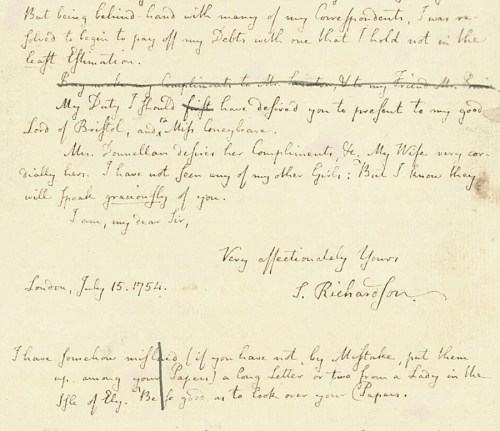 But being behind-hand with many of my Correspondents, I was re-
solved to begin to pay off my Debts with one that I hold not in the
least Estimation.
Pray make my Compliments to Mr. & to my Friend Mr.
My Duty I should first have desired you to present to my good
Lord of Bristol, and to Miss Coneybeare.
Mrs. Donnellan desires her Compliments, &c. My Wife very cor-
dially hers. I have not seen any of my other Girls: But I know they
will speak graciously of you.
I am, my dear Sir,
Very affectionately Yours,
London, July 15. 1754.
S. Richardson.
I have somehow mislaid (if you have not, by Mistake, put them
up among your Papers) a long Letter or two from a Lady in the
Isle of Ely. Be so good as to look over your Papers.